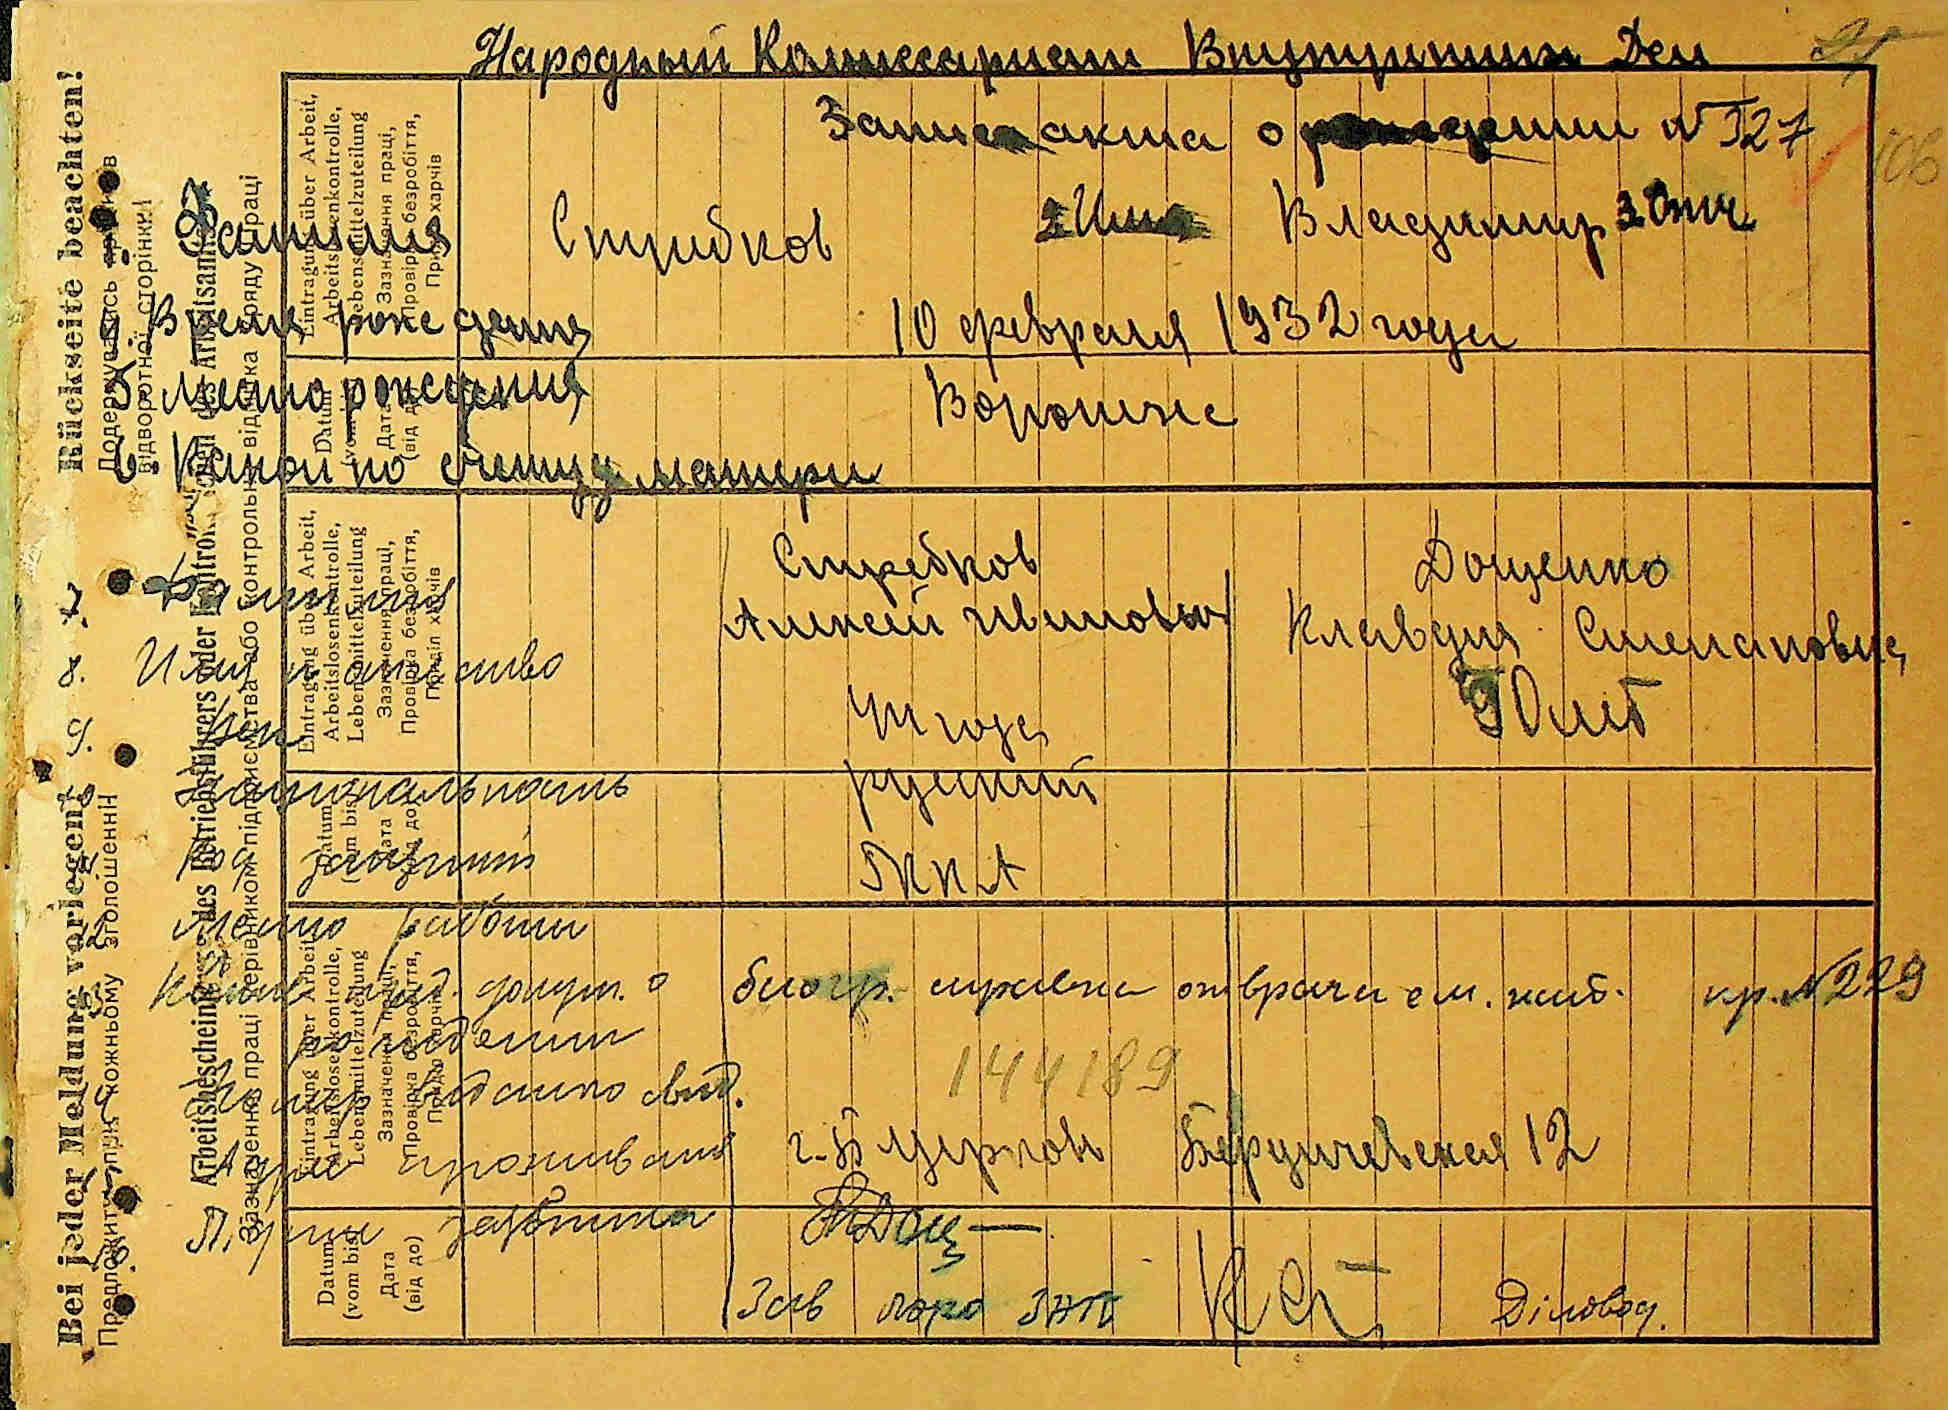 Народный Комиссариат Внутринних Дел
Запись акта о рождении № 327
106
1. Фамилия Стрибков 2 Имя Владимир 3 Отч
4. Время рождения 10 февраля 1932 года
5. Место рождения Воронеж
6. Какой по счету у матери
7. Фамилия Стребков Доценко
8. Имя и отчество Алексей Иванович Клавдия Степановна
9. Воз года 30 лет
Национальность русский
Род занятий РККА
Место работы
Каков. пред. докум. о рождении биогр. справка от врача с м. жит. пр. № 229
Номер выданно свид. 144189
Адрес проживания г. Бердичевская 12
Подпись заявителя Доц
Зав бюро ЗАГС Діловод.
Rückseite beachten!
Додержуватись приписів відворотної сторінки!
Bei jeder Meldung vorlegen!
Предложити при кожному зголошенні
Arbeitsbescheinigung des Betriebsführers oder Kontrollzeichen des Arbeitsamtes
Зазначення праці керівником підприємства або контрольна відзнака Уряду праці
Eintragung über Arbeit,
Arbeitslosenkontrolle,
Lebensmittelzuteilung
Зазначення праці,
Провірка безробіття,
Приділ харчів
Datum
(vom bis)
Дата
(від до)
Eintragung über Arbeit,
Arbeitslosenkontrolle,
Lebensmittelzuteilung
Зазначення праці,
Провірка безробіття,
Приділ харчів
Datum
(vom bis)
Дата
(від до)
Eintragung über Arbeit,
Arbeitslosenkontrolle,
Lebensmittelzuteilung
Зазначення праці,
Провірка безробіття,
Приділ харчів
Datum
(vom bis)
Дата
(від до)